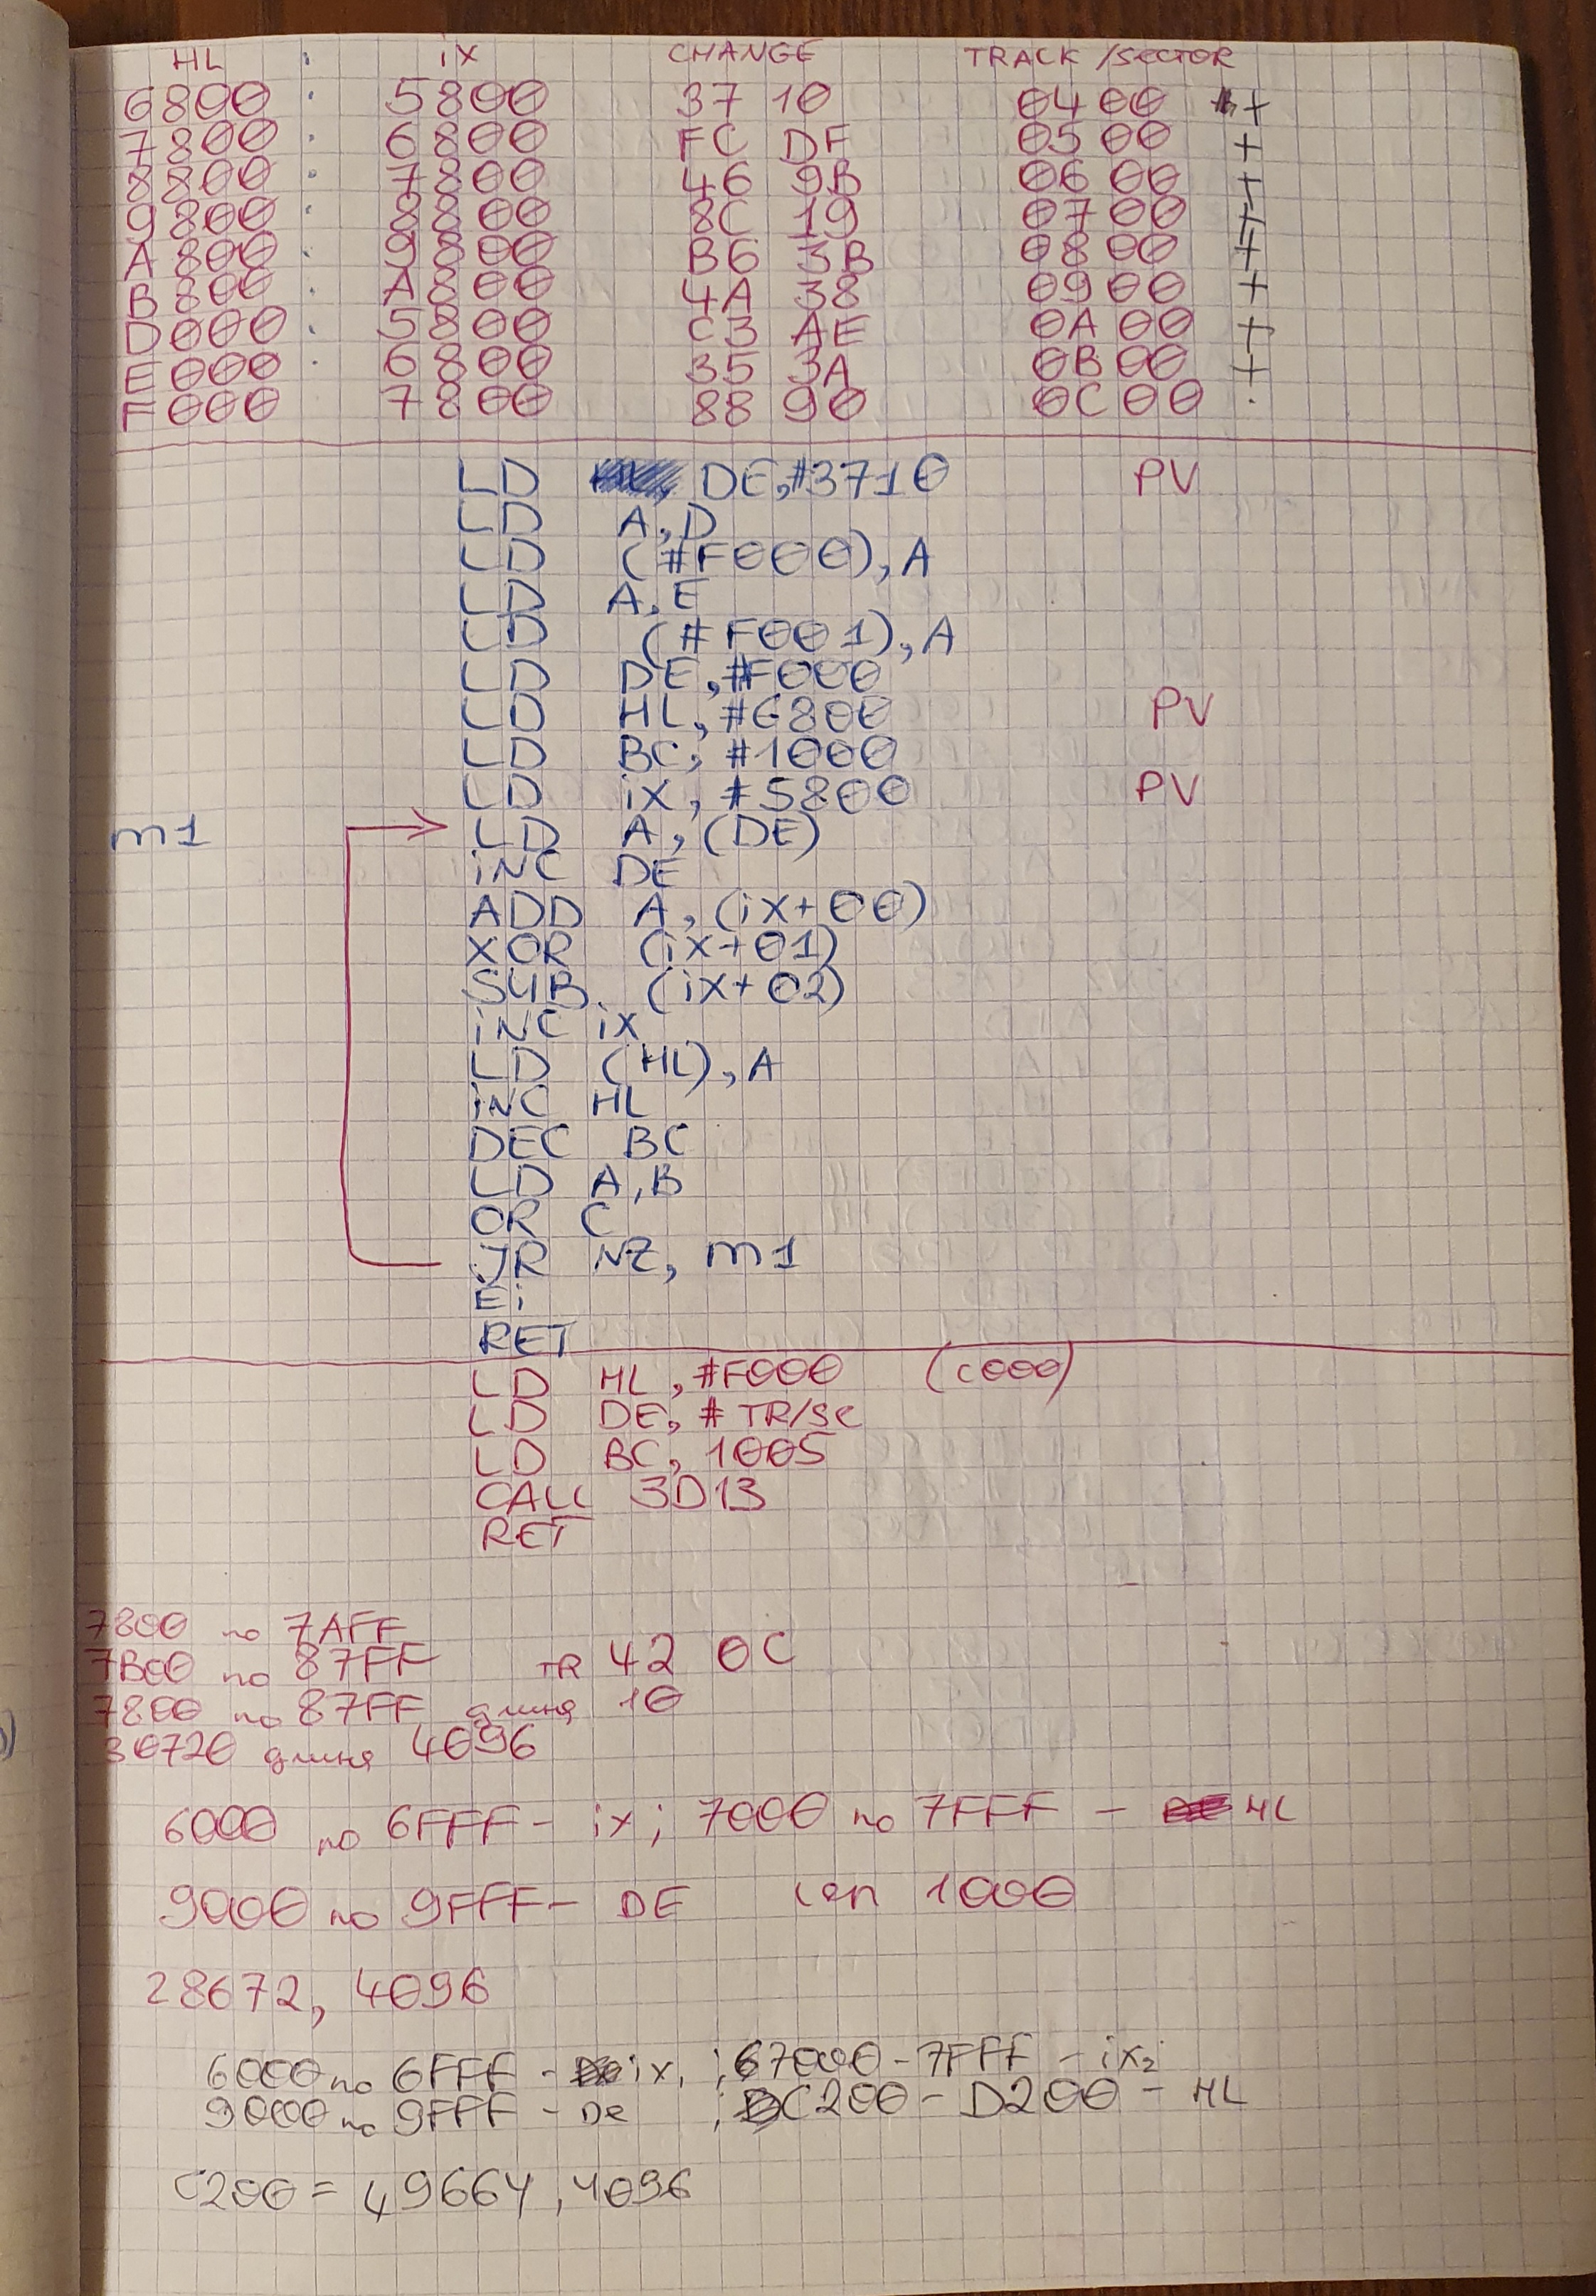 HL : iX CHANGE TRACK /SECTOR
6800 : 5800 37 10 0400 +
7800 : 6800 FC DF 0500 +
8800 : 7800 46 9B 0600 +
9800 : 8800 8C 19 0700 +
A800 : 9800 B6 3B 0800 +
B800 : A800 4A 38 0900 +
D000 : 5800 C3 AE 0A00 +
E000 · 6800 35 3A 0B00 +
F000 7800 88 90 0C00 .
LD DE,#3710 PV
LD A,D
LD (#F000),A
LD A,E
LD (#F001),A
LD DE,#F000
LD HL,#6800 PV
LD BC,#1000
LD iX,#5800 PV
m1 LD A,(DE)
iNC DE
ADD A,(iX+00)
XOR (iX+01)
SUB (iX+02)
iNC iX
LD (HL),A
iNC HL
DEC BC
LD A,B
OR C
JR NZ, m1
Ei
RET
LD HL,#F000 (C000)
LD DE,# TR/SC
LD BC,1005
CALL 3D13
RET
7800 по 7AFF
7B00 по 87FF TR 42 0C
7800 по 87FF длина 10
30720 длина 4096
6000 по 6FFF - ix; 7000 по 7FFF - HL
9000 по 9FFF - DE len 1000
28672, 4096
6000 по 6FFF - ix, ; 7000 - 7FFF - ix2
9000 по 9FFF - De ; C200 - D200 - HL
C200 = 49664, 4096